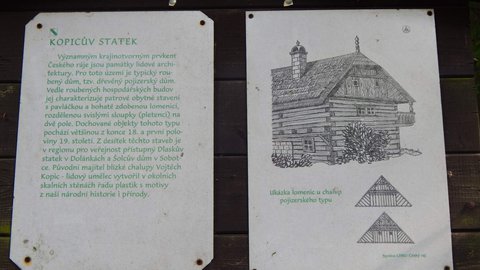 KOPICŮV STATEK
Významným krajinotvorným prvkem
Českého ráje jsou památky lidové archi-
tektury. Pro toto území je typický rou-
bený dům, tzv. dřevěný pojizerský dům.
Vedle roubených hospodářských budov
jej charakterizuje patrové obytné stavení
s pavláčkou a bohatě zdobenou lomenicí,
rozdělenou svislými sloupky (pletenci) na
dvě pole. Dochované objekty tohoto typu
pochází většinou z konce 18. a první polo-
viny 19. století. Z desítek těchto staveb je
v regionu pro veřejnost přístupný Dlaskův
statek v Dolánkách a Šolcův dům v Sobot-
ce. Původní majitel blízké chalupy Vojtěch
Kopic - lidový umělec vytvořil v okolních
skalních stěnách řadu plastik s motivy
z naší národní historie i přírody.
Ukázka lomenic u chalup
pojizerského typu